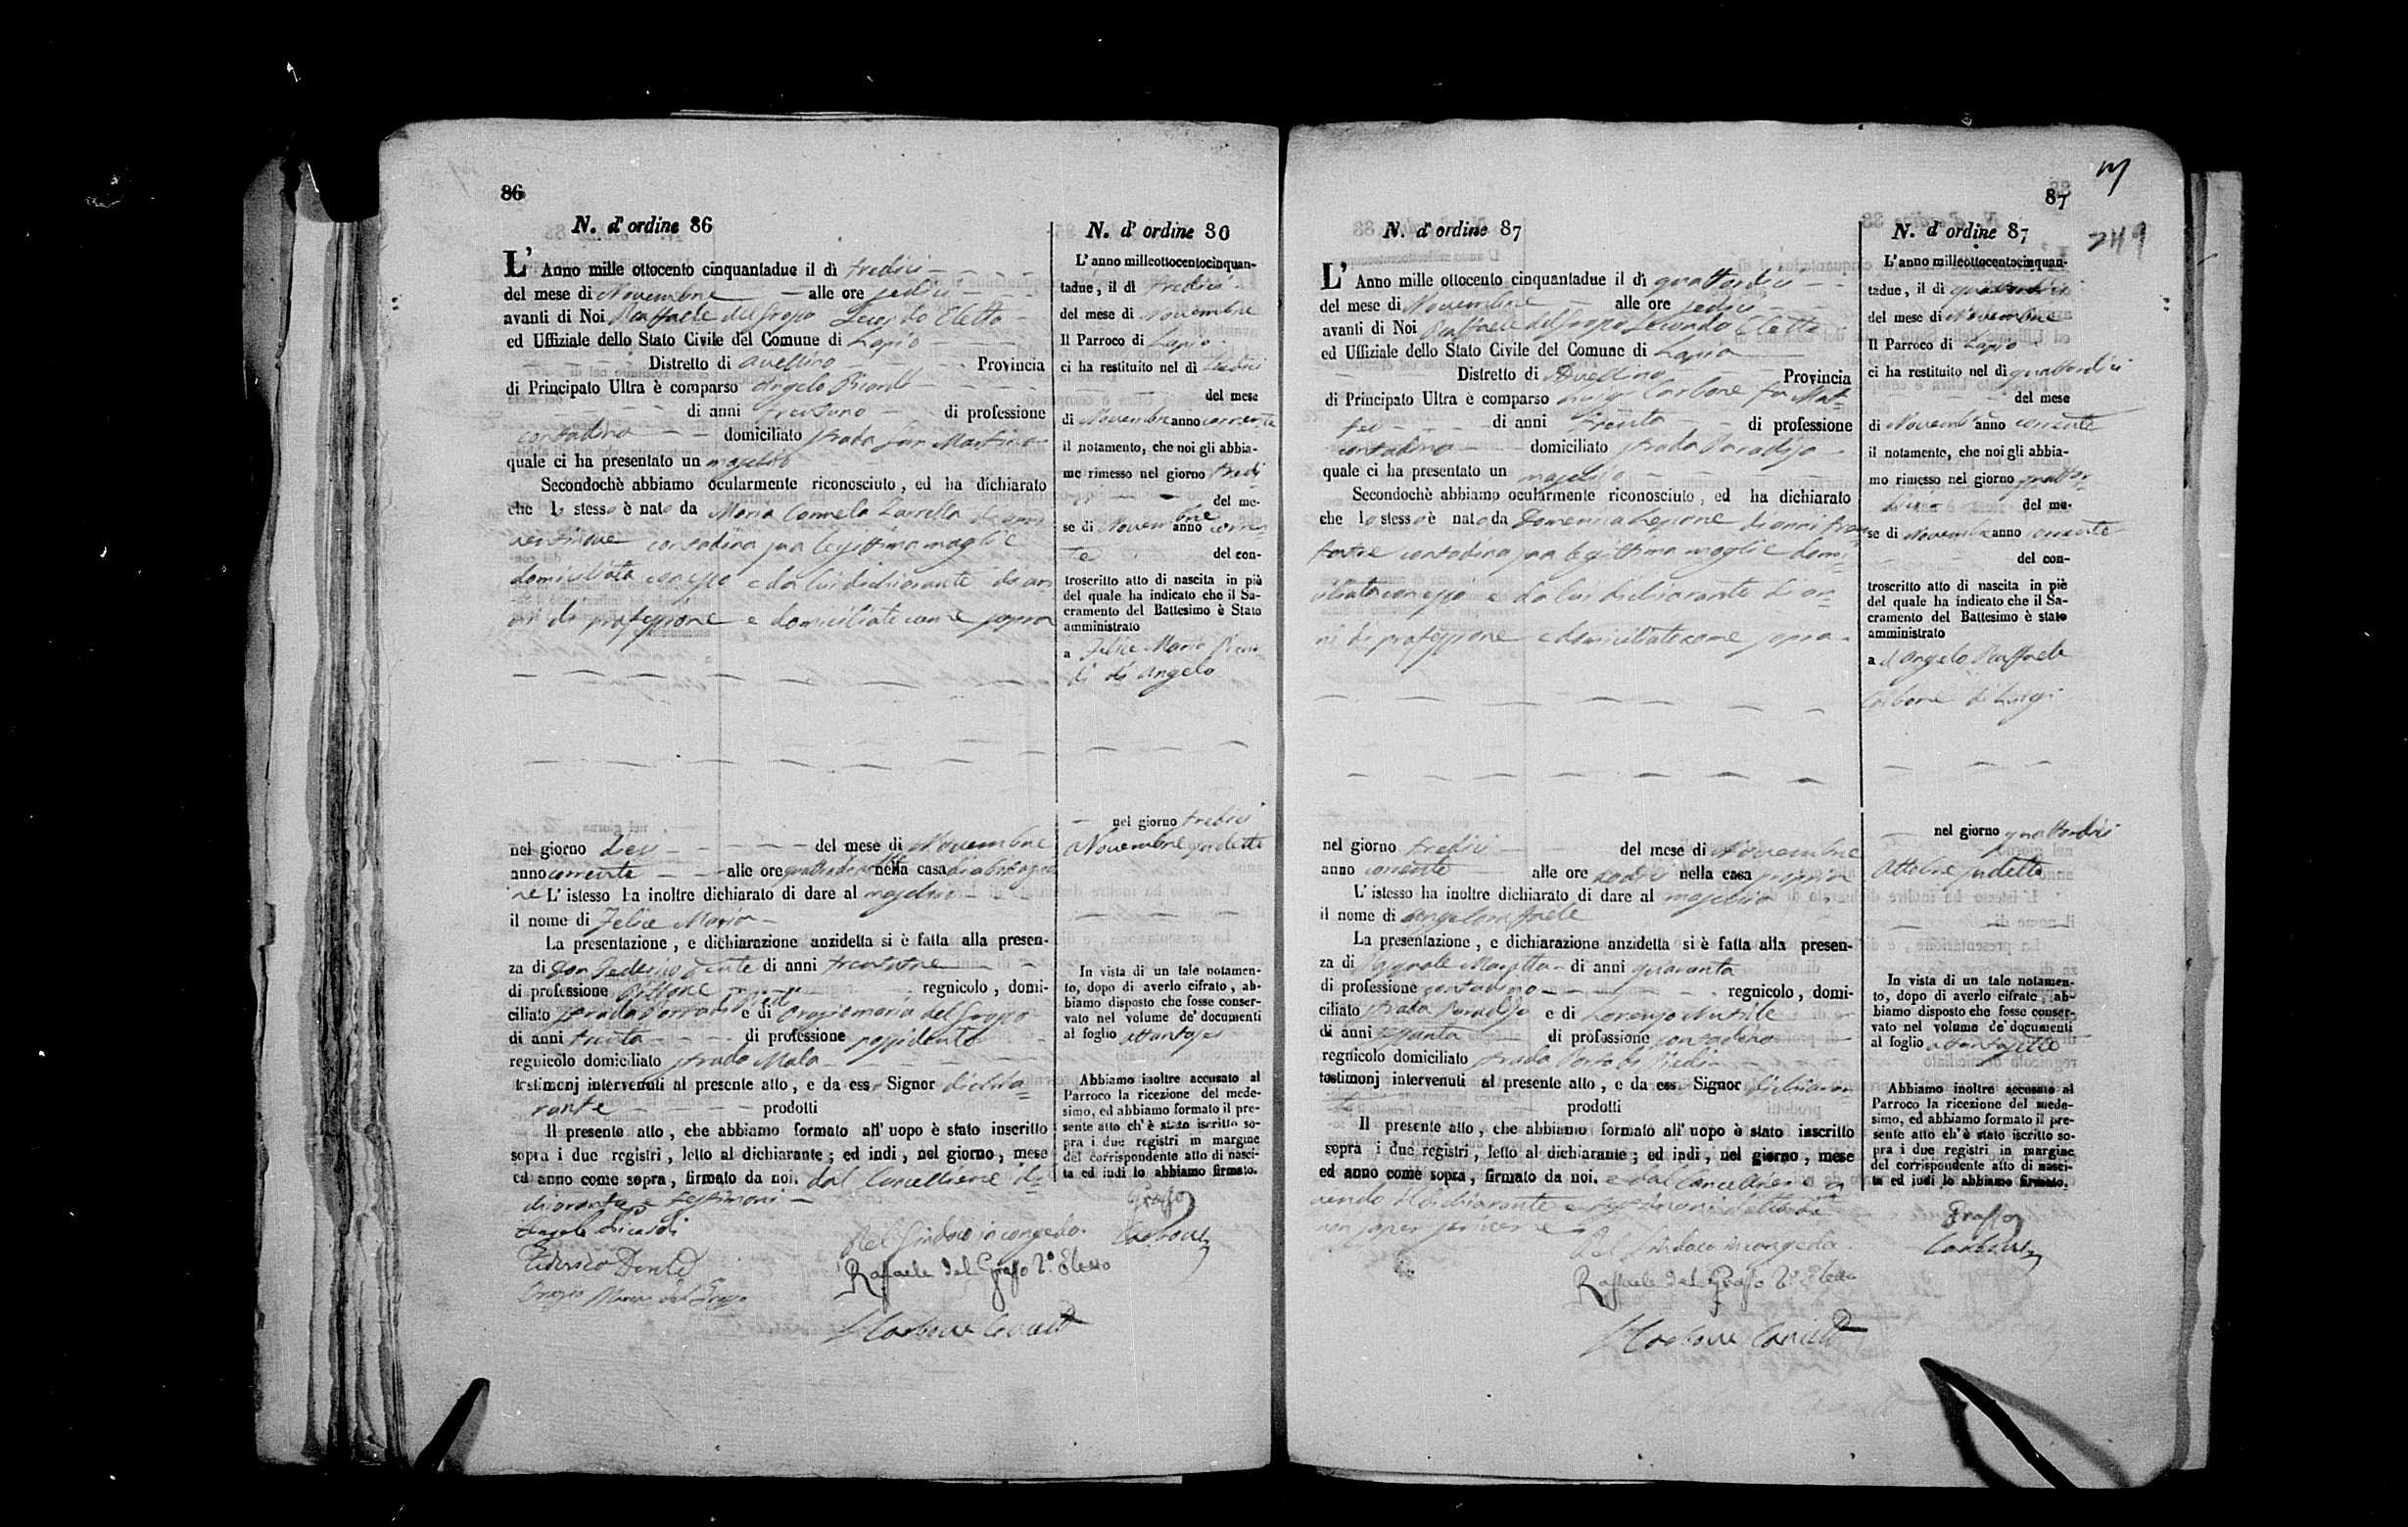 86
N. d' ordine 86
L' Anno mille ottocento cinquantadue il dì tredici
del mese di Novembre alle ore sedici
avanti di Noi Raffaele del Grosso Secondo Eletto
ed Uffiziale dello Stato Civile del Comune di Lapio
Distretto di Avellino Provincia
di Principato Ultra è comparso Angelo
di anni trentuno di professione
contadino domiciliato strada San Martino
quale ci ha presentato un maschio
Secondochè abbiamo ocularmente riconosciuto, ed ha dichiarato
che lo stesso è nato da Maria Carmela
contadina sua legittima moglie
domiciliata con esso e da lui dichiarante di an
ni di professione e domiciliati come sopra
nel giorno dieci del mese di Novembre
anno corrente alle ore nella casa
L' istesso ha inoltre dichiarato di dare al maschio
il nome di Felice Maria
La presentazione, e dichiarazione anzidetta si è fatta alla presen-
za di Don Federico Dente di anni
di professione regnicolo, domi-
ciliato strada e di Orazio Maria del Grosso
di anni trenta di professione possidente
regnicolo domiciliato strada
testimonj intervenuti al presente atto, e da esso Signor dichia=
rante prodotti
Il presente atto, che abbiamo formato all' uopo è stato inscritto
sopra i due registri, letto al dichiarante; ed indi, nel giorno, mese
ed anno come sopra, firmato da noi, dal Cancelliere di=
chiarante e testimoni
Angelo
Federico Dente
Orazio Maria del Grosso
Pel Sindaco in congedo
Raffaele del Grosso 2º Eletto
Carbone
N. d' ordine 86
L' anno milleottocentocinquan-
tadue, il dì tredici
del mese di Novembre
Il Parroco di Lapio
ci ha restituito nel dì tredici
del mese
di Novembre anno corrente
il notamento, che noi gli abbia-
mo rimesso nel giorno tredi
del me-
se di Novembre anno corren
te del con-
troscritto atto di nascita in piè
del quale ha indicato che il Sa-
cramento del Battesimo è Stato
amministrato
a Felice Maria
di Angelo
nel giorno tredici
Novembre sudetto
In vista di un tale notamen-
to, dopo di averlo cifrato, ab-
biamo disposto che fosse conser-
vato nel volume de' documenti
al foglio ottantasei
Abbiamo inoltre accusato al
Parroco la ricezione del mede-
simo, ed abbiamo formato il pre-
sente atto ch' è stato iscritto so-
pra i due registri in margine
del corrispondente atto di nasci-
ta ed indi lo abbiamo firmato.
Grasso
Carbone
87
249
N. d' ordine 87
L' Anno mille ottocento cinquantadue il dì quattordici
del mese di Novembre alle ore sedici
avanti di Noi Raffaele del Grosso Secondo Eletto
ed Uffiziale dello Stato Civile del Comune di Lapio
Distretto di Avellino Provincia
di Principato Ultra è comparso Luigi Carbone fu Mat=
teo di anni trenta di professione
contadino domiciliato strada Paradiso
quale ci ha presentato un maschio
Secondochè abbiamo ocularmente riconosciuto, ed ha dichiarato
che lo stesso è nato da Domenica di anni tren
contadina sua legittima moglie domi=
ciliata con esso e da lui dichiarante di an=
ni di professione e domiciliati come sopra
nel giorno tredici del mese di Novembre
anno corrente alle ore nella casa propria
L' istesso ha inoltre dichiarato di dare al maschio
il nome di Angeloraffaele
La presentazione, e dichiarazione anzidetta si è fatta alla presen-
za di Pasquale di anni quaranta
di professione contadino regnicolo, domi-
ciliato strada Paradiso e di Lorenzo
di anni sessanta di professione contadino
regnicolo domiciliato strada
testimonj intervenuti al presente atto, e da esso Signor dichiaran
te prodotti
Il presente atto, che abbiamo formato all' uopo è stato inscritto
sopra i due registri, letto al dichiarante; ed indi, nel giorno, mese
ed anno come sopra, firmato da noi, e dal Cancelliere a=
vendo il dichiarante e testimoni detto di
non saper scrivere
Pel Sindaco in congedo
Raffaele del Grosso 2º Eletto
Carbone
N. d' ordine 87
L' anno milleottocentocinquan-
tadue, il dì quattordici
del mese di Novembre
Il Parroco di Lapio
ci ha restituito nel dì quattordici
del mese
di Novemb anno corrente
il notamento, che noi gli abbia-
mo rimesso nel giorno quattor-
dici del me-
se di Novembre anno corrente
del con-
troscritto atto di nascita in piè
del quale ha indicato che il Sa-
cramento del Battesimo è stato
amministrato
a d Angelo Raffaele
Carbone di Luigi
nel giorno quattordici
Ottobre sudetto
In vista di un tale notamen-
to, dopo di averlo cifrato, ab-
biamo disposto che fosse conser-
vato nel volume de' documenti
al foglio ottantasette
Abbiamo inoltre accusato al
Parroco la ricezione del mede-
simo, ed abbiamo formato il pre-
sente atto ch' è stato iscritto so-
pra i due registri in margine
del corrispondente atto di nasci-
ta ed indi lo abbiamo firmato.
Grasso
Carbone